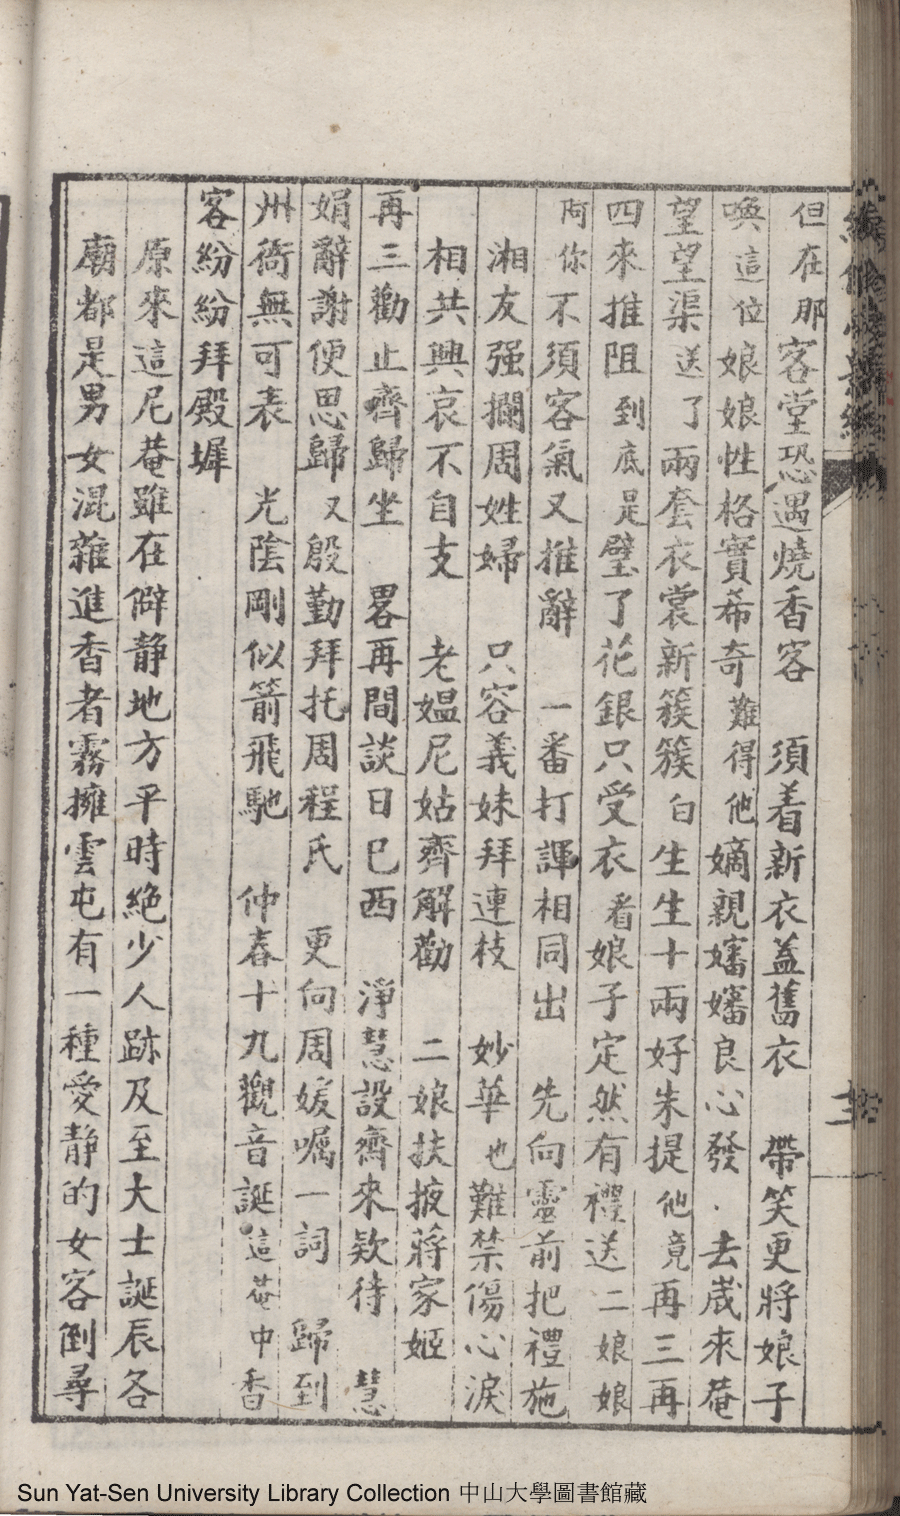 但在那客堂恐遇燒香客　須着新衣蓋舊衣　帶笑更將娘子
喚這位娘娘性格實希奇難得他嫡親嬸嬸良心發　去歲來菴
望望渠送了兩套衣裳新簇簇白生生十兩好朱提他竟再三再
四來推阻到底是璧了花銀只受衣看娘子定然有禮送二娘娘
阿你不須客氣又推辭　一番打諢相同出　先向靈前把禮施
湘友强攔周姓婦　只容義妹拜連枝　妙華也難禁傷心淚
相共興哀不自支　老媼尼姑齊解勸　二娘扶掖蔣家姬
再三勸止齊歸坐　畧再間談日已西　淨慧設齋來欵待　慧
娟辭謝便思歸又殷勤拜托周程氏　更向周媛囑一詞　歸到
州衙無可表　光陰剛似箭飛馳　仲春十九觀音誕這菴中香
客紛紛拜殿墀
原來這尼菴雖在僻靜地方平時絶少人跡及至大士誕辰各
廟都是男女混雜進香者霧擁雲屯有一種愛靜的女客倒尋
Sun Yat-Sen University Library Collection 中山大學圖書館藏